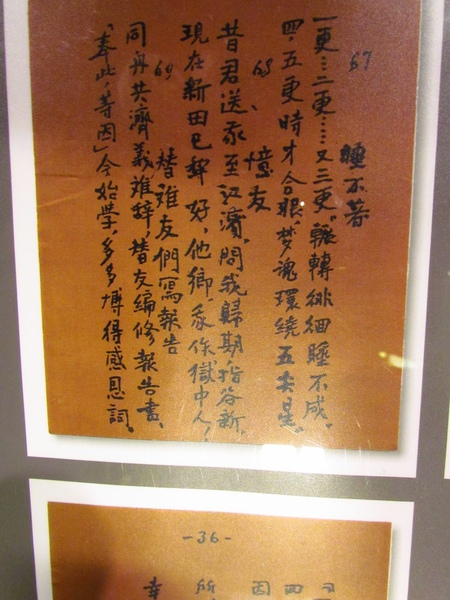 67
睡不著
一更…二更……又三更。輾轉徘徊睡不成。
四,五更時才合眼,夢魂環繞五尖星。
68
憶友
昔君送我至江濱,問我歸期指谷新,
現在新田已犁好,他鄉我作獄中人!
69
替难友們寫報告
同舟共濟義难辞,替友編修報告書,
「奉此,等因」今始学,多多博得感恩詞。
-36-
四
因
所